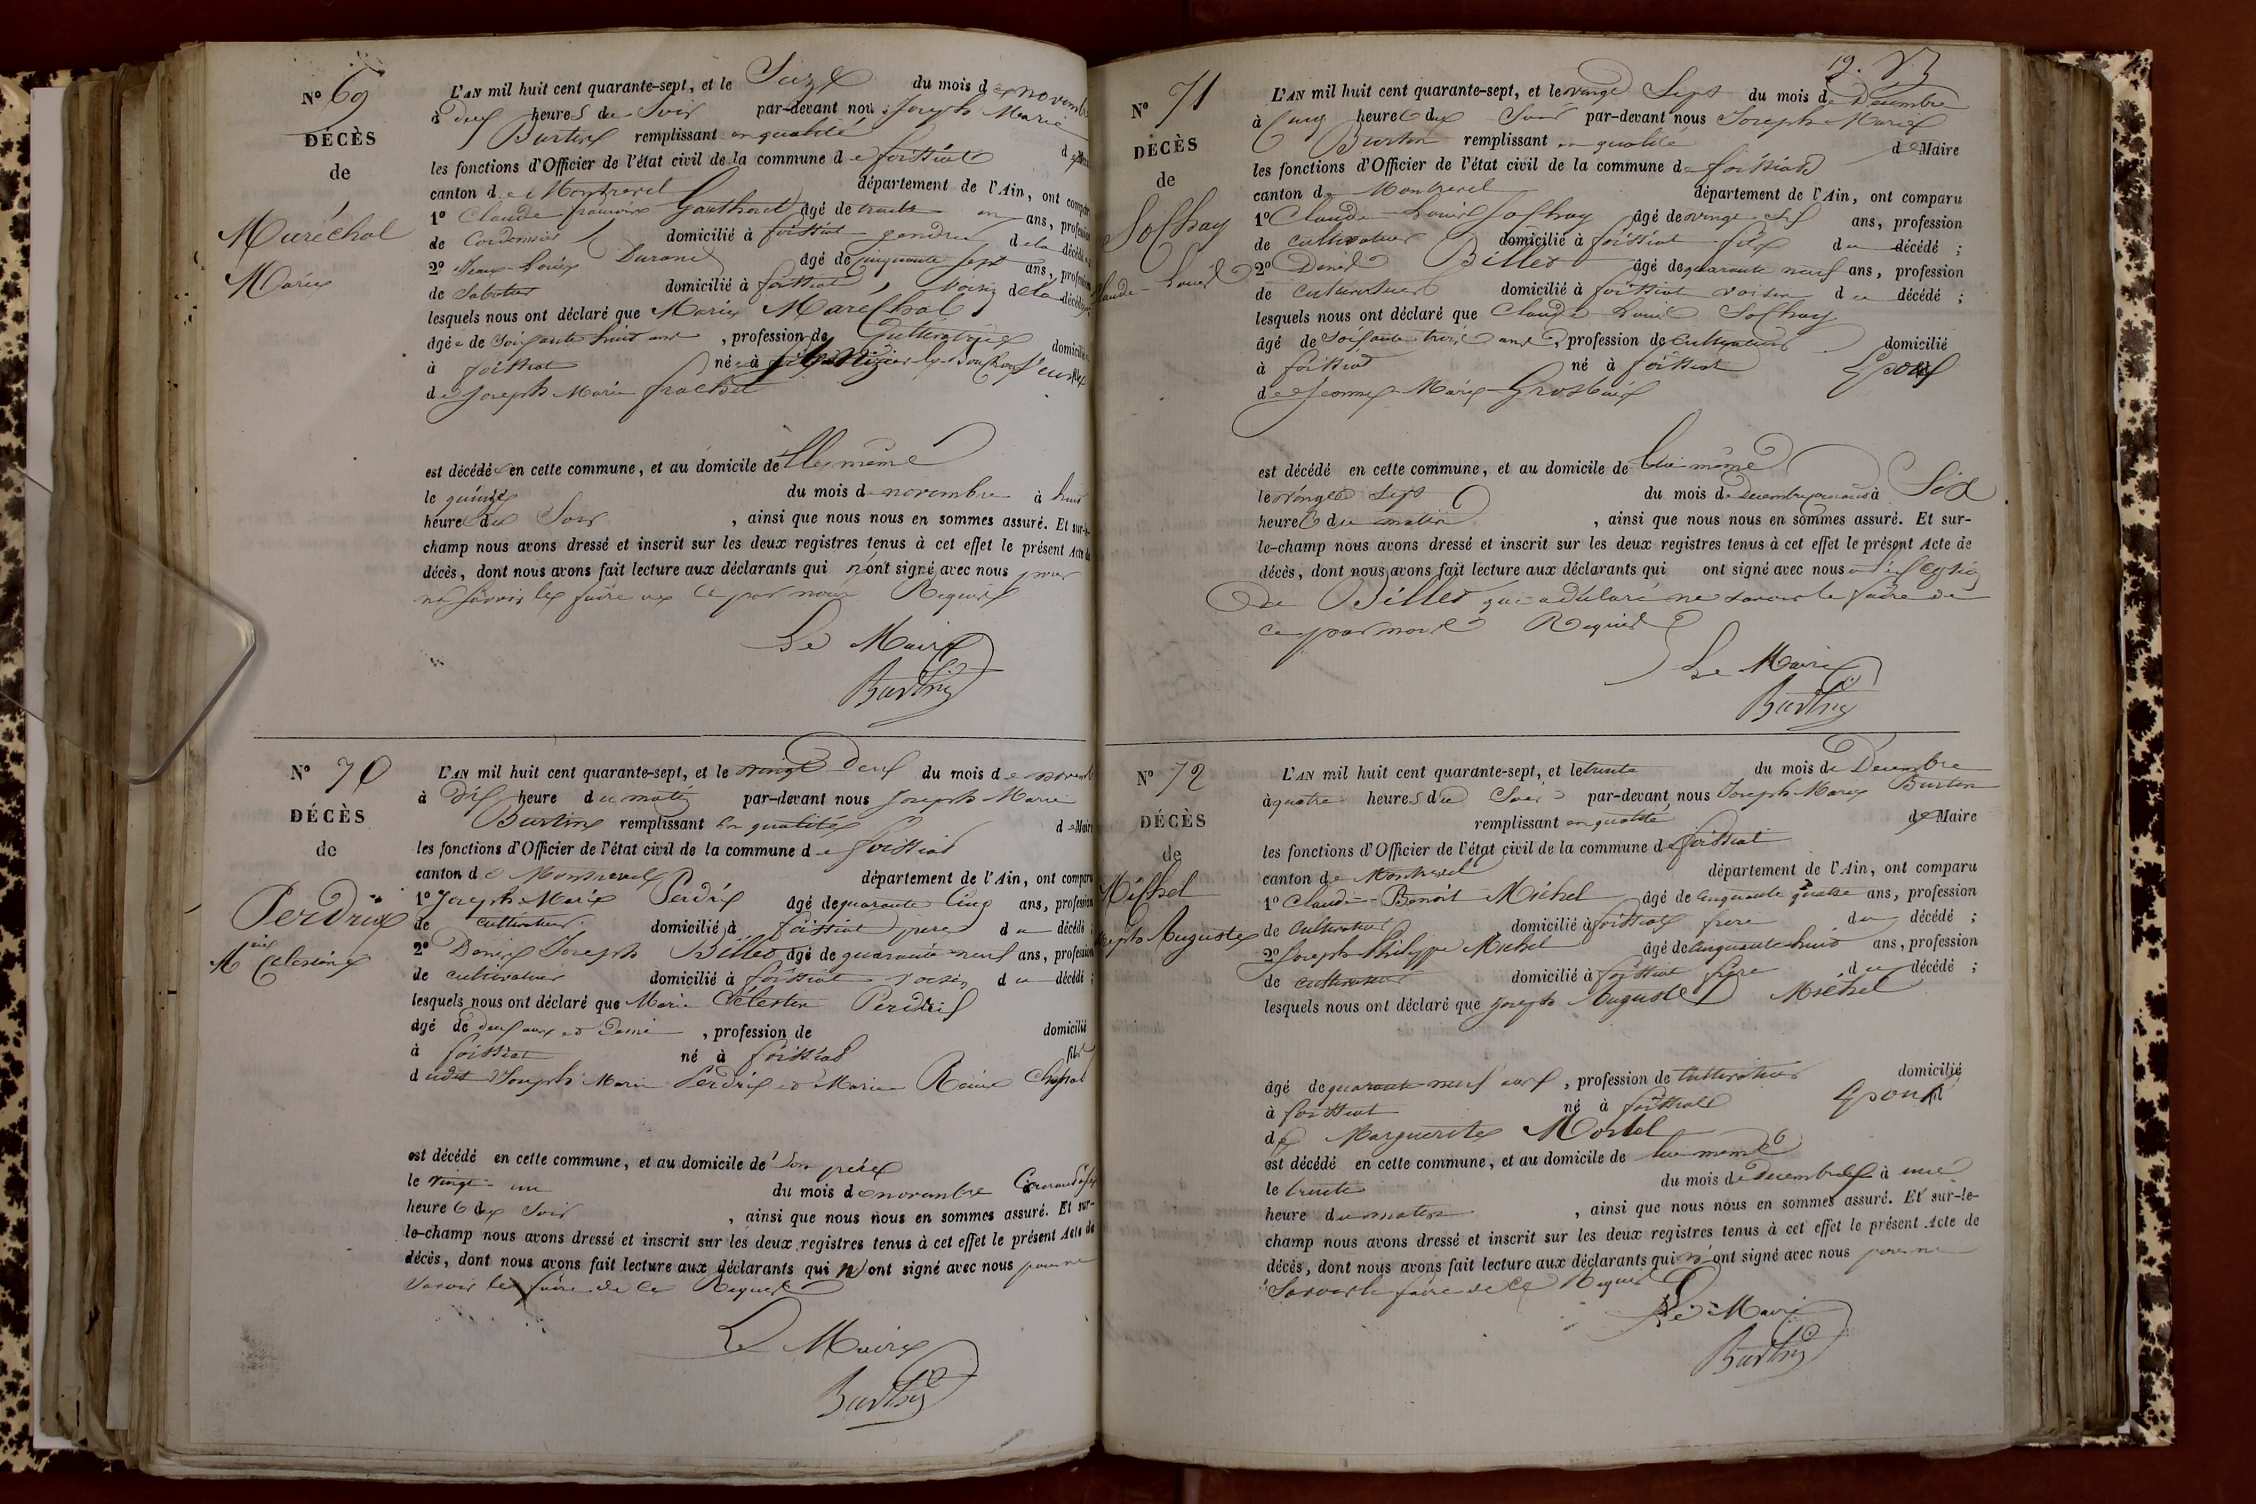 N° 69
DÉCÈS
de
Maréchal
Marie
L'AN mil huit cent quarante-sept, et le Seize du mois de novembre
à deux heures du Soir par-devant nous Joseph Marie
Burtin remplissant en qualité de Maire
les fonctions d'Officier de l'état civil de la commune de foissiat
canton de Montrevel département de l'Ain, ont comparu
1° Claude françois Gautheret âgé de trente un ans, profession
de Cordonnier domicilié à foissiat gendre de la décédée
2° Jean-Louis Durand âgé de cinquante sept ans, profession
de Sabotier domicilié à foissiat, Voisin de la décédée;
lesquels nous ont déclaré que Marie Maréchal
âgée de soixante huit ans, profession de Cultivatrice domiciliée
à foissiat née à St Nizier le Bouchoux Veuve
de Joseph Marie frachet
est décédée en cette commune, et au domicile de Elle même
le quinze du mois de novembre à huit
heures du Soir, ainsi que nous nous en sommes assuré. Et sur-le-
champ nous avons dressé et inscrit sur les deux registres tenus à cet effet le présent Acte de
décès, dont nous avons fait lecture aux déclarants qui n'ont signé avec nous pour
ne savoir le faire de ce par nous Requis
Le Maire
Burtin
N° 70
DÉCÈS
de
Perdrix
Marie Celestin
L'AN mil huit cent quarante-sept, et le vingt Deux du mois de novembre
à Dix heure du matin par-devant nous Joseph Marie
Burtin remplissant en qualité de Maire
les fonctions d'Officier de l'état civil de la commune de foissiat
canton de Montrevel département de l'Ain, ont comparu
1° Joseph Marie Perdrix âgé de quarante Cinq ans, profession
de cultivateur domicilié à foissiat père du décédé;
2° Denis Joseph Billet âgé de quarante neuf ans, profession
de cultivateur domicilié à foissiat voisin du décédé;
lesquels nous ont déclaré que Marie Célestin Perdrix
âgé de deux ans et demi, profession de domicilié
à foissiat né à foissiat fils
dudit Joseph Marie Perdrix et Marie Reine Chapal
est décédé en cette commune, et au domicile de son père
le vingt-un du mois de novembre Courant à six
heures du Soir, ainsi que nous nous en sommes assuré. Et sur-
le-champ nous avons dressé et inscrit sur les deux registres tenus à cet effet le présent Acte de
décès, dont nous avons fait lecture aux déclarants qui n'ont signé avec nous pour ne
savoir le faire de ce Requis
Le Maire
Burtin
N° 71
DÉCÈS
de
Sochay
Claude-Louis
L'AN mil huit cent quarante-sept, et le vingt Sept du mois de Décembre
à Cinq heures du Soir par-devant nous Joseph Marie
Burtin remplissant en qualité de Maire
les fonctions d'Officier de l'état civil de la commune de foissiat
canton de Montrevel département de l'Ain, ont comparu
1° Claude-Louis Sochay âgé de vingt-six ans, profession
de cultivateur domicilié à foissiat fils du décédé;
2° Denis Billet âgé de quarante neuf ans, profession
de cultivateur domicilié à foissiat voisin du décédé;
lesquels nous ont déclaré que Claude Louis Sochay
âgé de soixante trois ans, profession de Cultivateur domicilié
à foissiat né à foissiat Epoux
de Jeanne-Marie Grosbuis
est décédé en cette commune, et au domicile de lui-même
le vingt Sept du mois de Décembre courant à Six
heures du matin, ainsi que nous nous en sommes assuré. Et sur-
le-champ nous avons dressé et inscrit sur les deux registres tenus à cet effet le présent Acte de
décès, dont nous avons fait lecture aux déclarants qui ont signé avec nous à l'exception
de Billet qui a déclaré ne savoir le faire de
ce par nous Requis
Le Maire
Burtin
N° 72
DÉCÈS
de
Michel
Joseph Auguste
L'AN mil huit cent quarante-sept, et le trente du mois de Décembre
à quatre heures du Soir par-devant nous Joseph-Marie Burtin
remplissant en qualité de Maire
les fonctions d'Officier de l'état civil de la commune de foissiat
canton de Montrevel département de l'Ain, ont comparu
1° Claude-Benoit Michel âgé de cinquante quatre ans, profession
de cultivateur domicilié à foissiat frère du décédé;
2° Joseph Philippe Michel âgé de cinquante huit ans, profession
de cultivateur domicilié à foissiat frère du décédé;
lesquels nous ont déclaré que Joseph Auguste Michel
âgé de quarante-neuf ans, profession de Cultivateur domicilié
à foissiat né à foissiat Epoux
de Marguerite Mortel
est décédé en cette commune, et au domicile de lui même
le trente du mois de Décembre à une
heure du matin, ainsi que nous nous en sommes assuré. Et sur-le-
champ nous avons dressé et inscrit sur les deux registres tenus à cet effet le présent Acte de
décès, dont nous avons fait lecture aux déclarants qui n'ont signé avec nous pour ne
Savoir le faire de ce Requis
Le Maire
Burtin